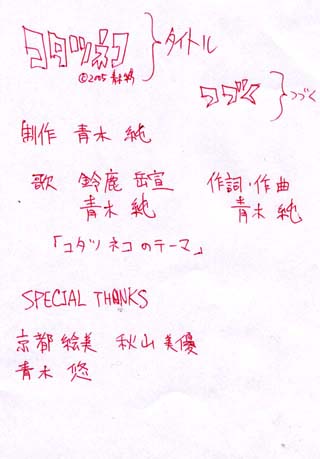 コタツネコ タイトル
©2005 青木純
つづく つづく
制作 青木 純
歌 鈴鹿 岳宣 作詞・作曲
青木 純 青木 純
「コタツ ネコ のテーマ」
SPECIAL THANKS
京都 絵美 秋山 美優
青木 悠